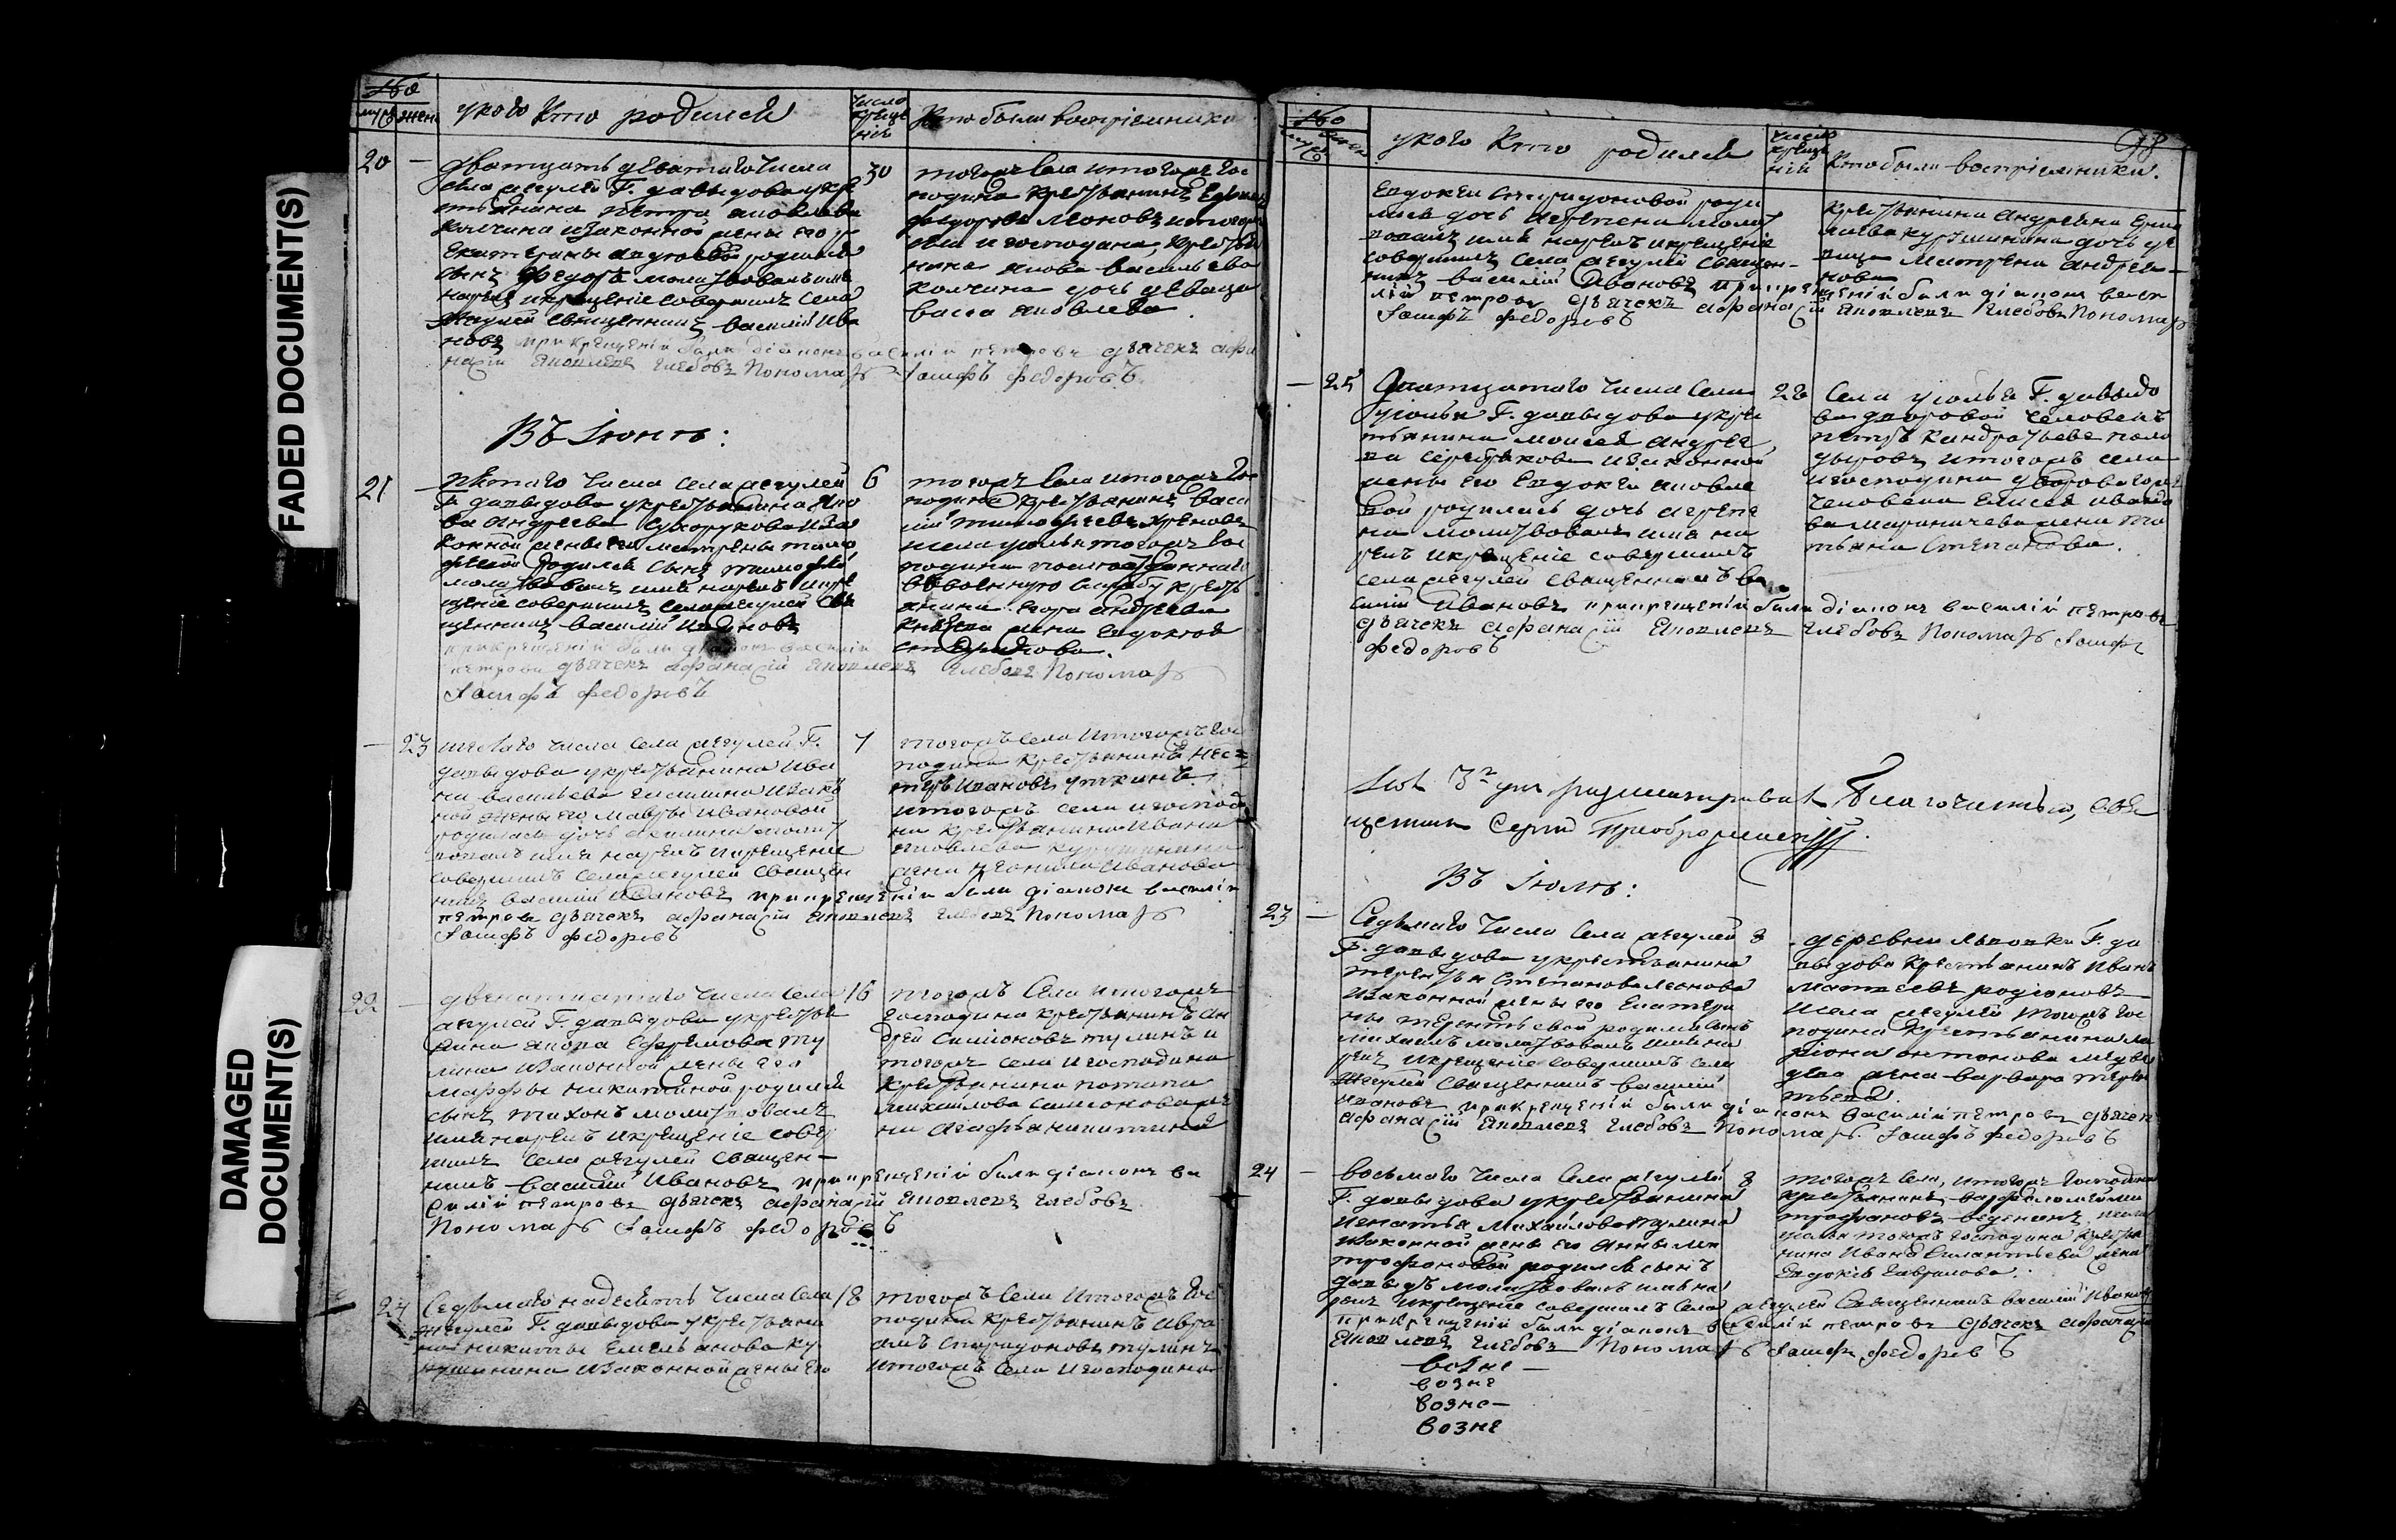 FADED DOCUMENT(S)
DAMAGED
DOCUMENT(S)
№
муж жен
у кого кто родился
число
креще
нія
Кто были воспріемники
20 — 30
дватцать девятаго числа
села жегулей Г. давыдова у кре
стьянина петра яковлева
колчина изаконной жены его
Екатерины родился
сынъ Федоръ молитвовалъ имя
нарекъ икрещеніе совершилъ села
жегулей священникъ василий Ива
новъ при крещеніи были діаконъ василій петровъ дьячекъ афа
насій Яковлевъ глебовъ Пономарь Іосифъ федоровъ
тогожъ села итогожъ гос
подина крестьянинъ
федоровъ итогожъ
села игосподина крестья
нина якова васильева
колчина дочь девица
васса яковлева
Въ Іюнѣ:
21 — 6
пятаго числа села жегулей
Г. давыдова у крестьянина Яко
ва Андреева сухорукова изза
конной жены его матрены тимо
феевой родился сынъ тимофей
молитвовалъ имя нарекъ икре
щеніе совершилъ села жегулей свя
щенникъ василий Ивановъ
при крещеніи были діаконъ василій
петровъ дьячекъ афанасій Яковлевъ глебовъ Пономарь
Іосифъ федоровъ
тогожъ села итогожъ гос
подина крестьянинъ васи
лий тимофеевъ хреновъ
исела усолья тогожъ гос
подина
ввоенную службу кресть
янина андреева
жена евдокия
— 23 7
шестаго числа села жегулей Г.
давыдова у крестьянина Ива
на васильева изако
ной жены его мавры Ивановой
родилась дочь акилина молит
вовалъ имя нарекъ икрещение
совершилъ села жегулей священ
никъ василий Ивановъ при крещеніи были діаконъ василій
петровъ дьячекъ афанасій Яковлевъ глебовъ Пономарь
Іосифъ федоровъ
тогожъ села итогожъ гос
подина крестьянинъ нес
теръ Ивановъ уткинъ
итогожъ села игосподи
на крестьянина Ивана
яковлева
жена Иванова
22 — 16
двенатцатаго числа села
жегулей Г. давыдова у крестья
нина якова Ефремова ту
лина изаконной жены его
марфы никитиной родился
сынъ тихонъ молитвовалъ
имя нарекъ икрещеніе совер
шилъ села жегулей священ—
никъ василий Ивановъ при крещеніи были діаконъ ва
силій петровъ дьячекъ афанасій Яковлевъ глебовъ
Пономарь Іосифъ федоровъ
тогожъ села итогожъ
господина крестьянинъ ан
дрей Симіоновъ тулинъ и
тогожъ села игосподина
крестьянина потапа
михайлова симіонова же
на агафья никитина
24 18
Седьмаго надесять числа села
жегулей Г. давыдова у крестьяни
на никиты Емельянова ку
изаконной жены его
тогожъ села итогожъ гос
подина крестьянинъ Авра
амъ спиридоновъ тулинъ
итогожъ села игосподина
98
№
у кого кто родился
число
креще
нія
Кто были воспріемники.
Евдокеи спиридоновой роди
лась дочь агрепена молит
вовалъ имя нарекъ икрещеніе
совершилъ села жегулей священ—
никъ василий Ивановъ при крещеній были діаконъ васи
лій петровъ дьячекъ афанасій Яковлевъ глебовъ Пономарь
Іосифъ федоровъ
крестьянина андреяна
дочь де
вица матрена андрея—
нова
— 25 22
числа села
усолья Г. давыдова у кре
стьянина моисея андрее
ва серебрякова изаконной
жены его Евдокеи яковле
вой родилась дочь агрепе
на молитвовалъ имя на
рекъ икрещеніе совершилъ
села жегулей священникъ ва
силий Ивановъ при крещеній были діаконъ василій петровъ
дьячекъ афанасій Яковлевъ глебовъ Пономарь Іосифъ
федоровъ
села усолья Г. давыдо
ва дворовой человекъ
петръ кандратьевъ
итогожъ села
игосподина двороваго
человека Елисея
жена та
тьяна степанова.
разсматривалъ Благочинный, свя
щенникъ Сергій Преображенскій.
Въ Іюлѣ:
23 — 8
Седьмаго числа села жегулей
Г. давыдова у крестьянина
терентья степанова леонова
изаконной жены его Екатери
ны терентьевой родился сынъ
михаилъ молитвовалъ имя на
рекъ икрещеніе совершилъ села
жегулей священникъ василий
Ивановъ при крещеній были діаконъ василій петровъ дьячекъ
афанасій Яковлевъ глебовъ Пономарь Іосифъ федоровъ
деревни львовки Г. да
выдова крестьянинъ Иванъ
матвеевъ родіоновъ
исела жегулей тогожъ гос
подина крестьянина ла
ріона антонова медве
дева жена варвара терен
тьева.
24 — 8
восьмаго числа села жегулей
Г. давыдова у крестьянина
игнатья михайлова тулина
изаконной жены его анны ми
трофановой родился сынъ
давыдъ молитвовалъ имя на
рекъ икрещение совершилъ села жегулей священникъ василий Ивановъ
при крещеній были діаконъ василій петровъ дьячекъ афанасій
Яковлевъ глебовъ Пономарь Іосифъ федоровъ
тогожъ села, итогожъ господина
крестьянинъ варфоломей ми
трофановъ исела
усолья тогожъ господина крестья
нина Ивана жена
Евдокія гаврилова.
возне—
возне
возне—
возне